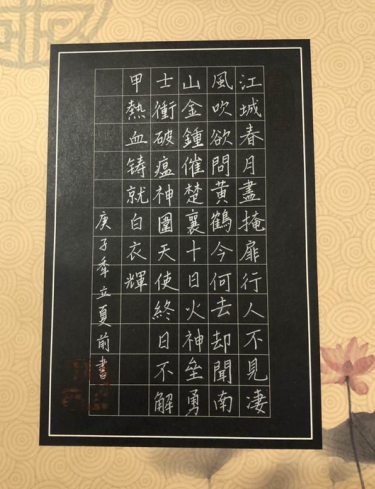 江城春月盡掩扉行人不見淒
風吹欲問黃鶴今何去却聞南
山金鍾催楚襄十日火神壘勇
士衝破瘟神圍天使終日不解
甲熱血铸就白衣輝
庚子年立夏前書